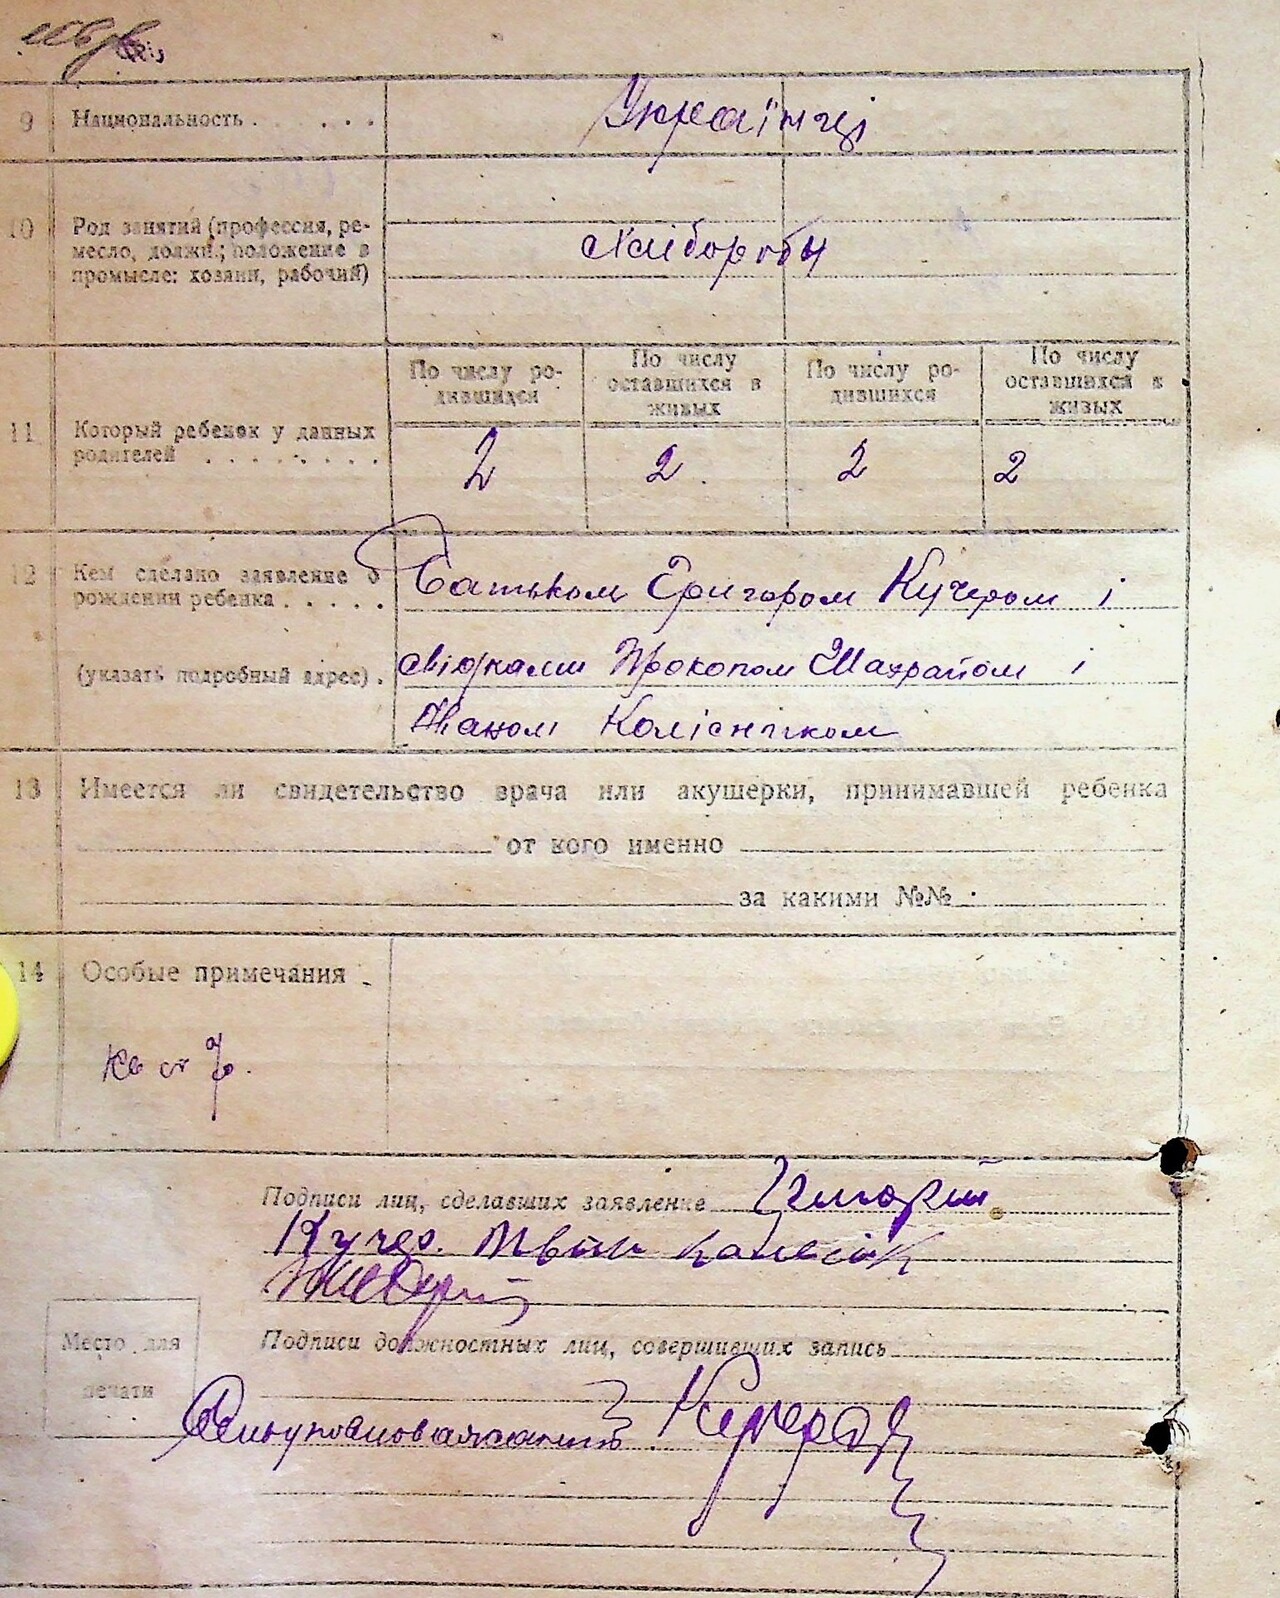 9 Национальность . . . . . Українці
10 Род занятий (профессия, ре-
месло, должн.; положение в
промысле: хозяин, рабочий)
Хлібороби
По числу ро-
дившихся
По числу
оставшихся в
живых
По числу ро-
дившихся
По числу
оставшихся в
живых
11 Который ребенок у данных
родителей . . . . . . . .
2 2 2 2
12 Кем сделано заявление о
рождении ребенка . . . . .
(указать подробный адрес) .
Батьком Григором Кучером і
свідками Прокопом Шахрайом і
Іваном Колісником
13 Имеется ли свидетельство врача или акушерки, принимавшей ребенка
от кого именно
за какими №№
14 Особые примечания
Подписи лиц, сделавших заявление
Кучер.
Место для
печати
Подписи должностных лиц, совершивших запись